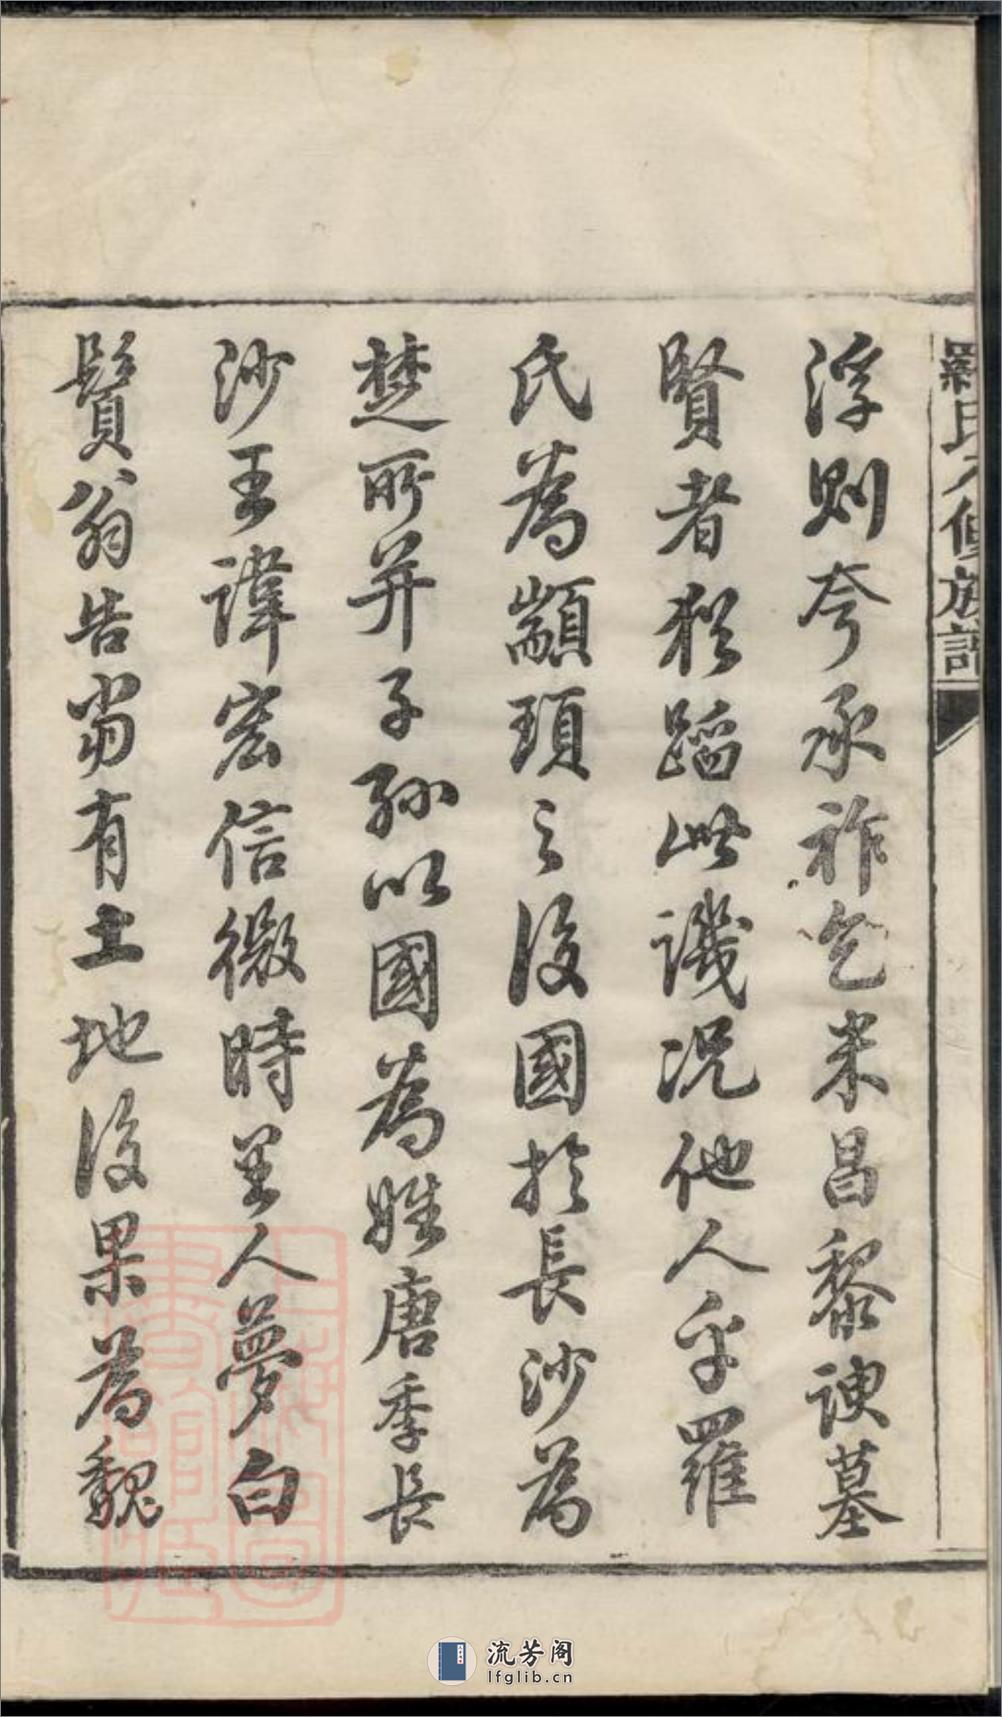 羅氏六修族譜
浮則夸承祚乞米昌黎諛墓
賢者猶蹈此譏況他人乎羅
氏為顓頊之後國於長沙為
楚所并子孫以國為姓唐季長
沙王諱宏信微時里人夢白
鬚翁告當有土地後果為魏
上海圖書館藏
流芳阁
lfglib.cn